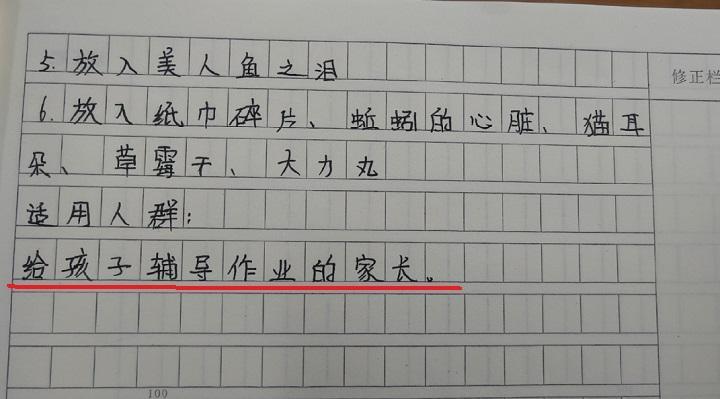 5.放入美人鱼之泪
修正栏
6.放入纸巾碎片、蚯蚓的心脏、猫耳
朵、草霉干、大力丸
适用人群：
给孩子辅导作业的家长。
100